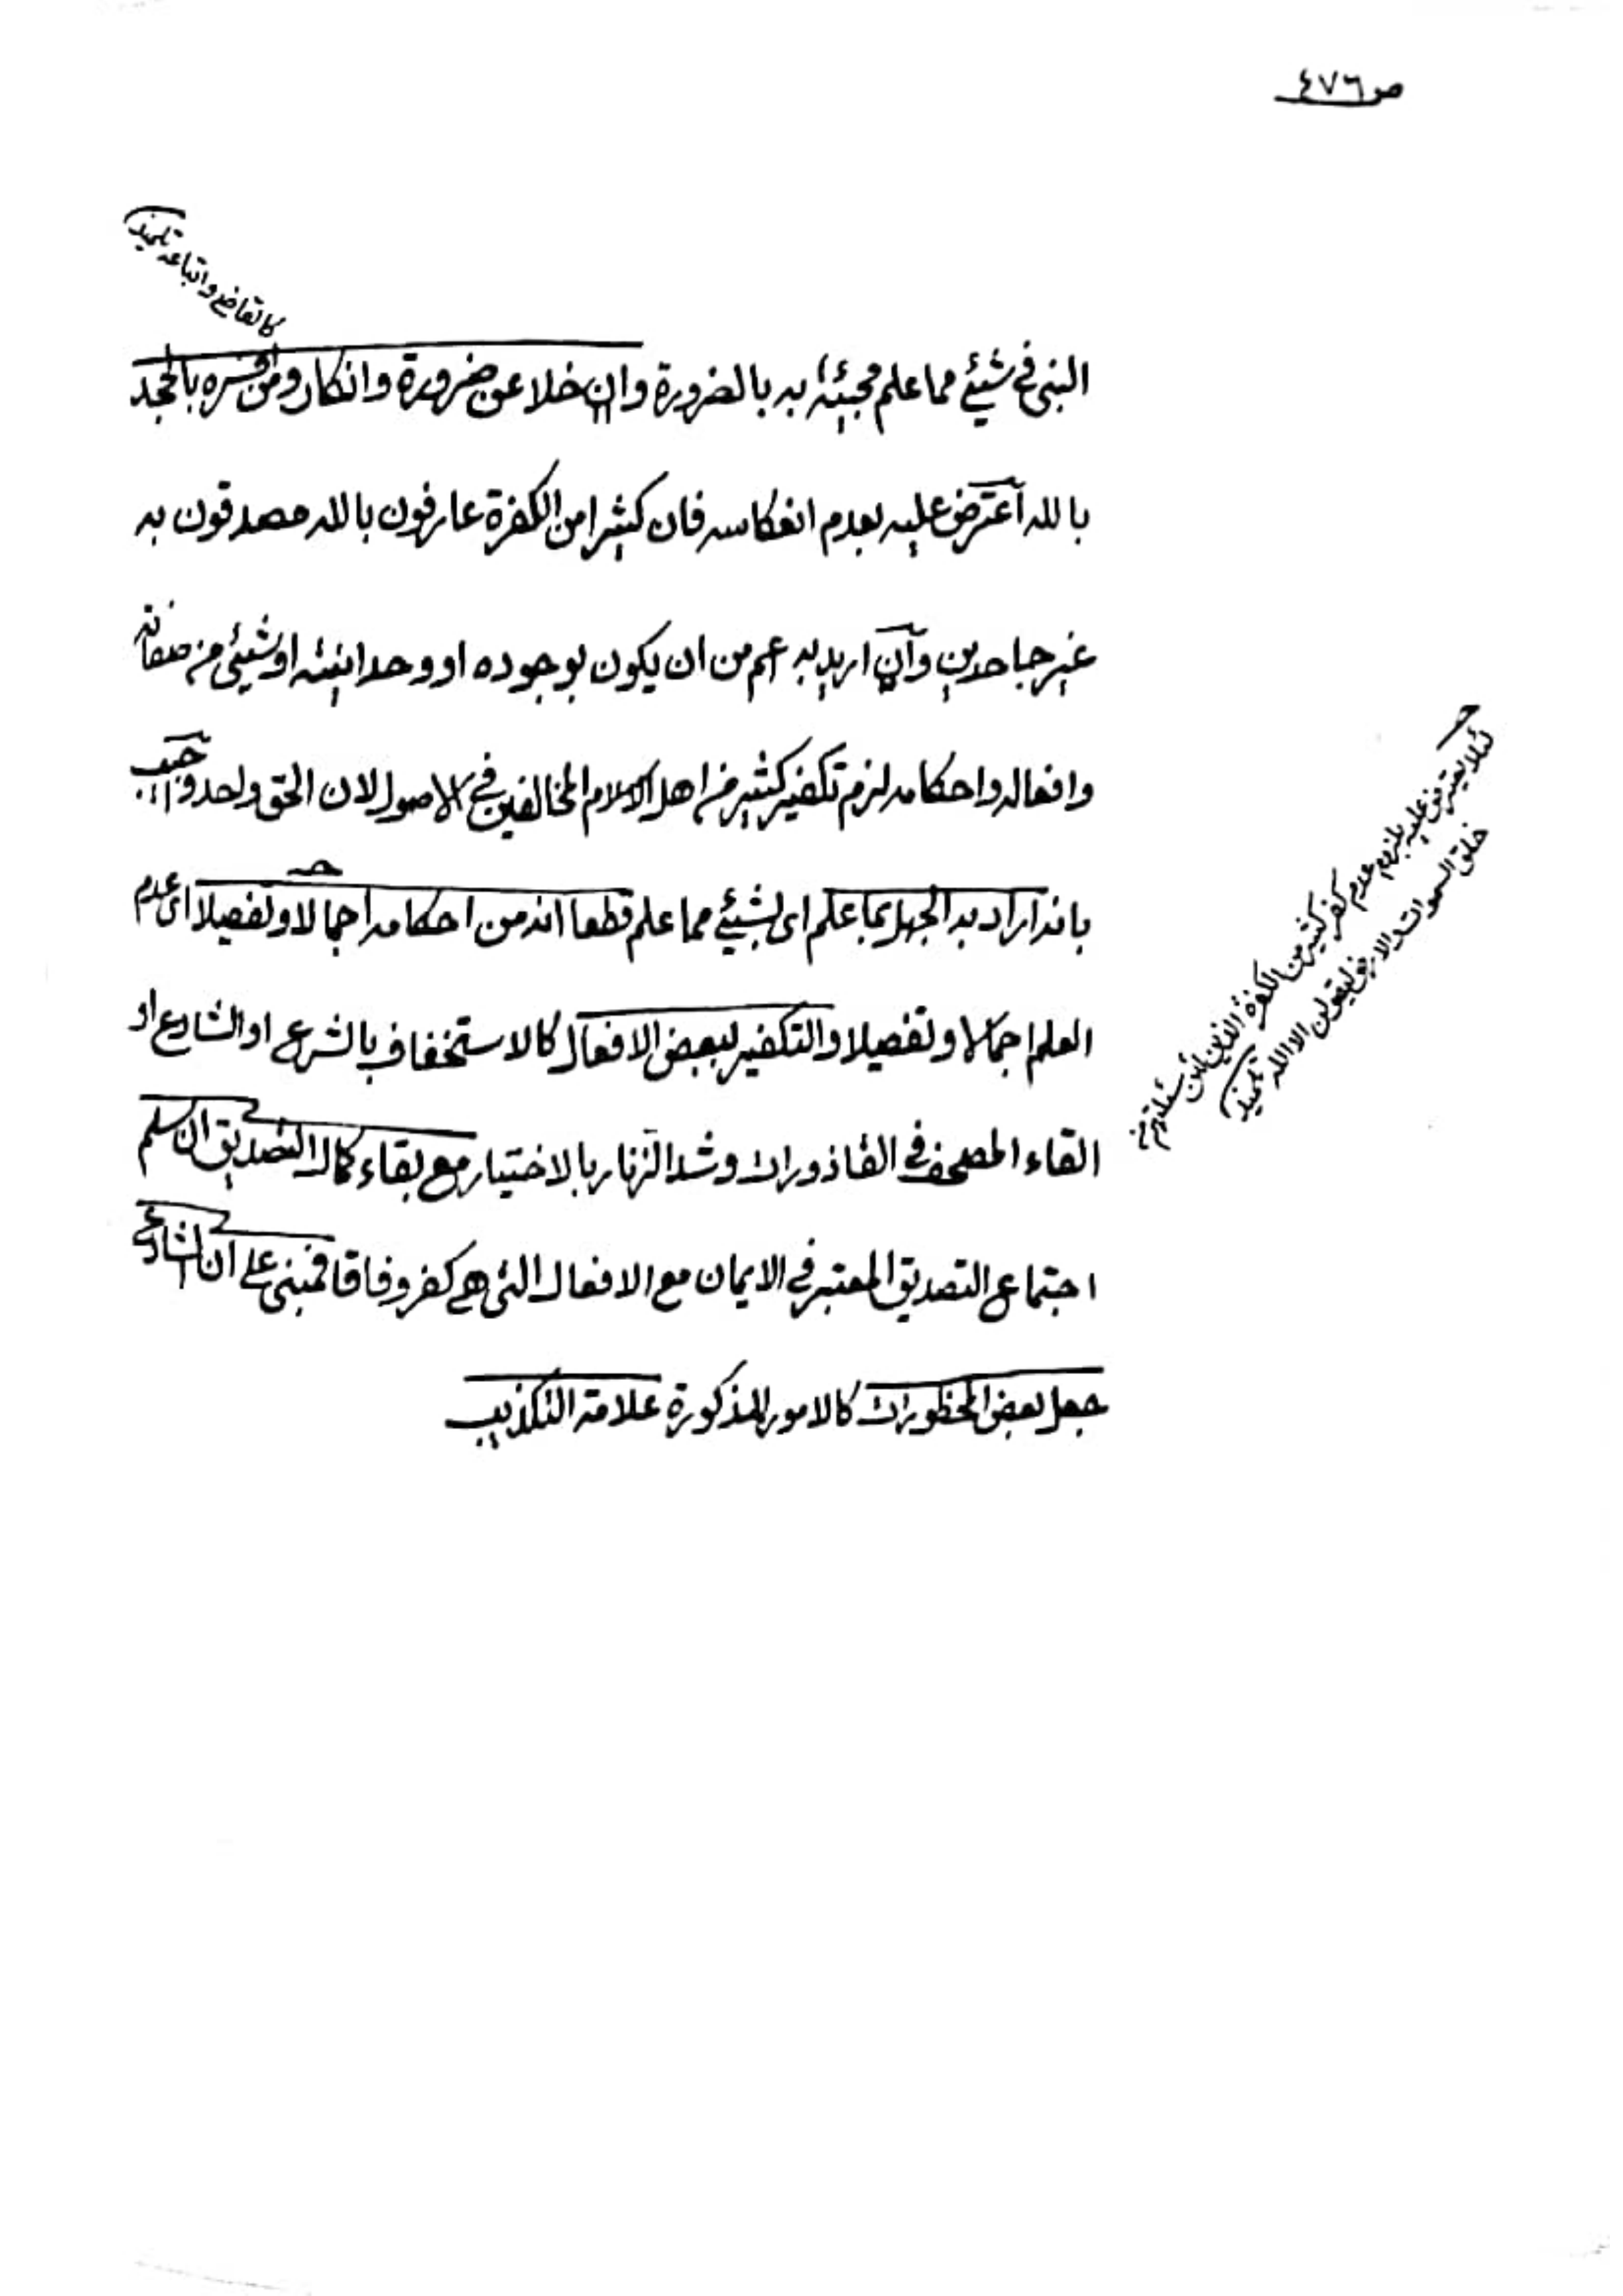 ص ٤٧٦
كالقاضي واتباعه تلميذ
النبى فى شيئ مما علم مجيئه به بالضرورة وان خلا عن ضرورة وانكار ومن فسره بالجحد
بالله اعترض عليه بعدم انعكاسه فان كثيرا من الكفرة عارفون بالله مصدقون به
غير جاحدين وان اريد به اعم من ان يكون بوجوده او وحدانيته او شيئ من صفاته
وافعاله واحكامه لزم تكفير كثير من اهل الاسلام المخالفين في الاصول لان الحق واحد واجيب
بانه اراد به الجهل بما علم اى بشيئ مما علم قطعا انه من احكامه اجمالا وتفصيلا اى عدم
العلم اجمالا وتفصيلا والتكفير لبعض الافعال كالاستخفاف بالشرع او الشارع او
القاء المصحف فى القاذورات وشد الزنار بالاختيار مع بقاء كمال التصديق ان سلم
اجتماع التصديق المعتبر في الايمان مع الافعال التى هى كفر وفاقا فمبنى على ان الشارع
جعل بعض المحظورات كالامور المذكورة علامة التكذيب
لئلا يعترض عليه بلزوم عدم كفر كثير من الكفرة الذين لئن سئلتهم من
خلق السموات والارض ليقولن الا الله تلميذ